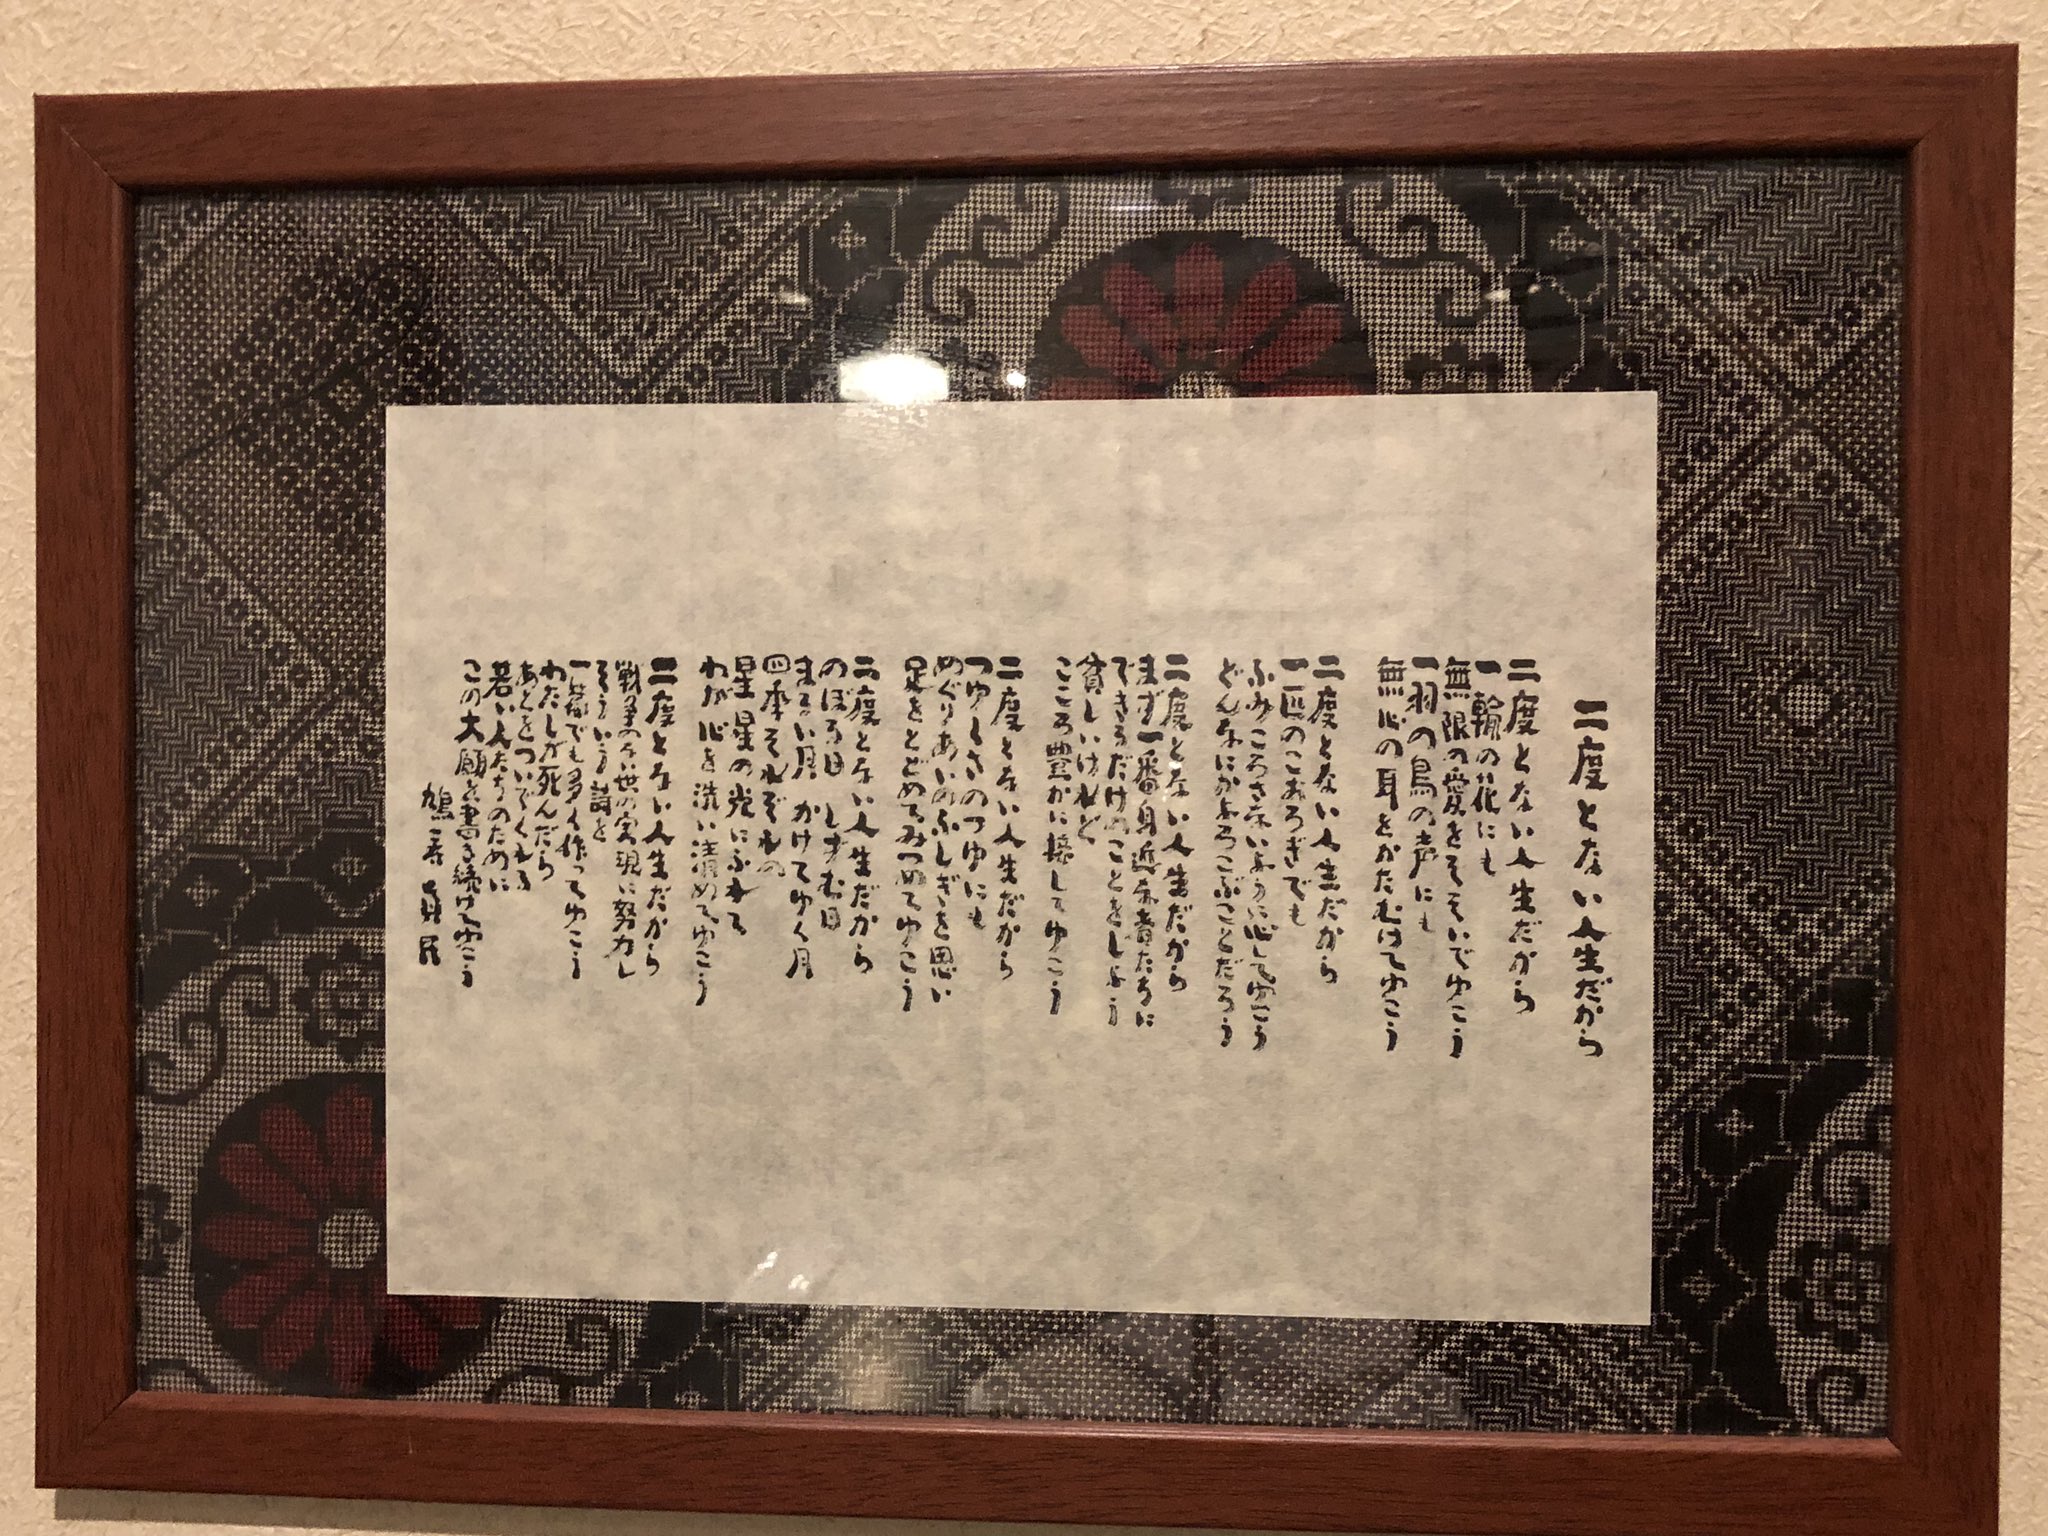 二度とない人生だから
二度とない人生だから
一輪の花にも
無限の愛をそそいでゆこう
一羽の鳥の声にも
無心の耳をかたむけてゆこう
二度とない人生だから
一匹のこおろぎでも
ふみころさないように心してゆこう
どんなにかよろこぶことだろう
二度とない人生だから
まず一番身近な者たちに
できるだけのことをしよう
貧しいけれど
こころ豊かに接してゆこう
二度とない人生だから
つゆくさのつゆにも
めぐりあいのふしぎを思い
足をとどめてみつめてゆこう
二度とない人生だから
のぼる日 しずむ日
まるい月 かけてゆく月
四季それぞれの
星星の光にふれて
わが心を洗い清めてゆこう
二度とない人生だから
戦争のない世の実現に努力し
そういう詩を
一篇でも多く作ってゆこう
わたしが死んだら
あとをついでくれる
若い人たちのために
この大願を書き続けてゆこう
鳩寿 真民